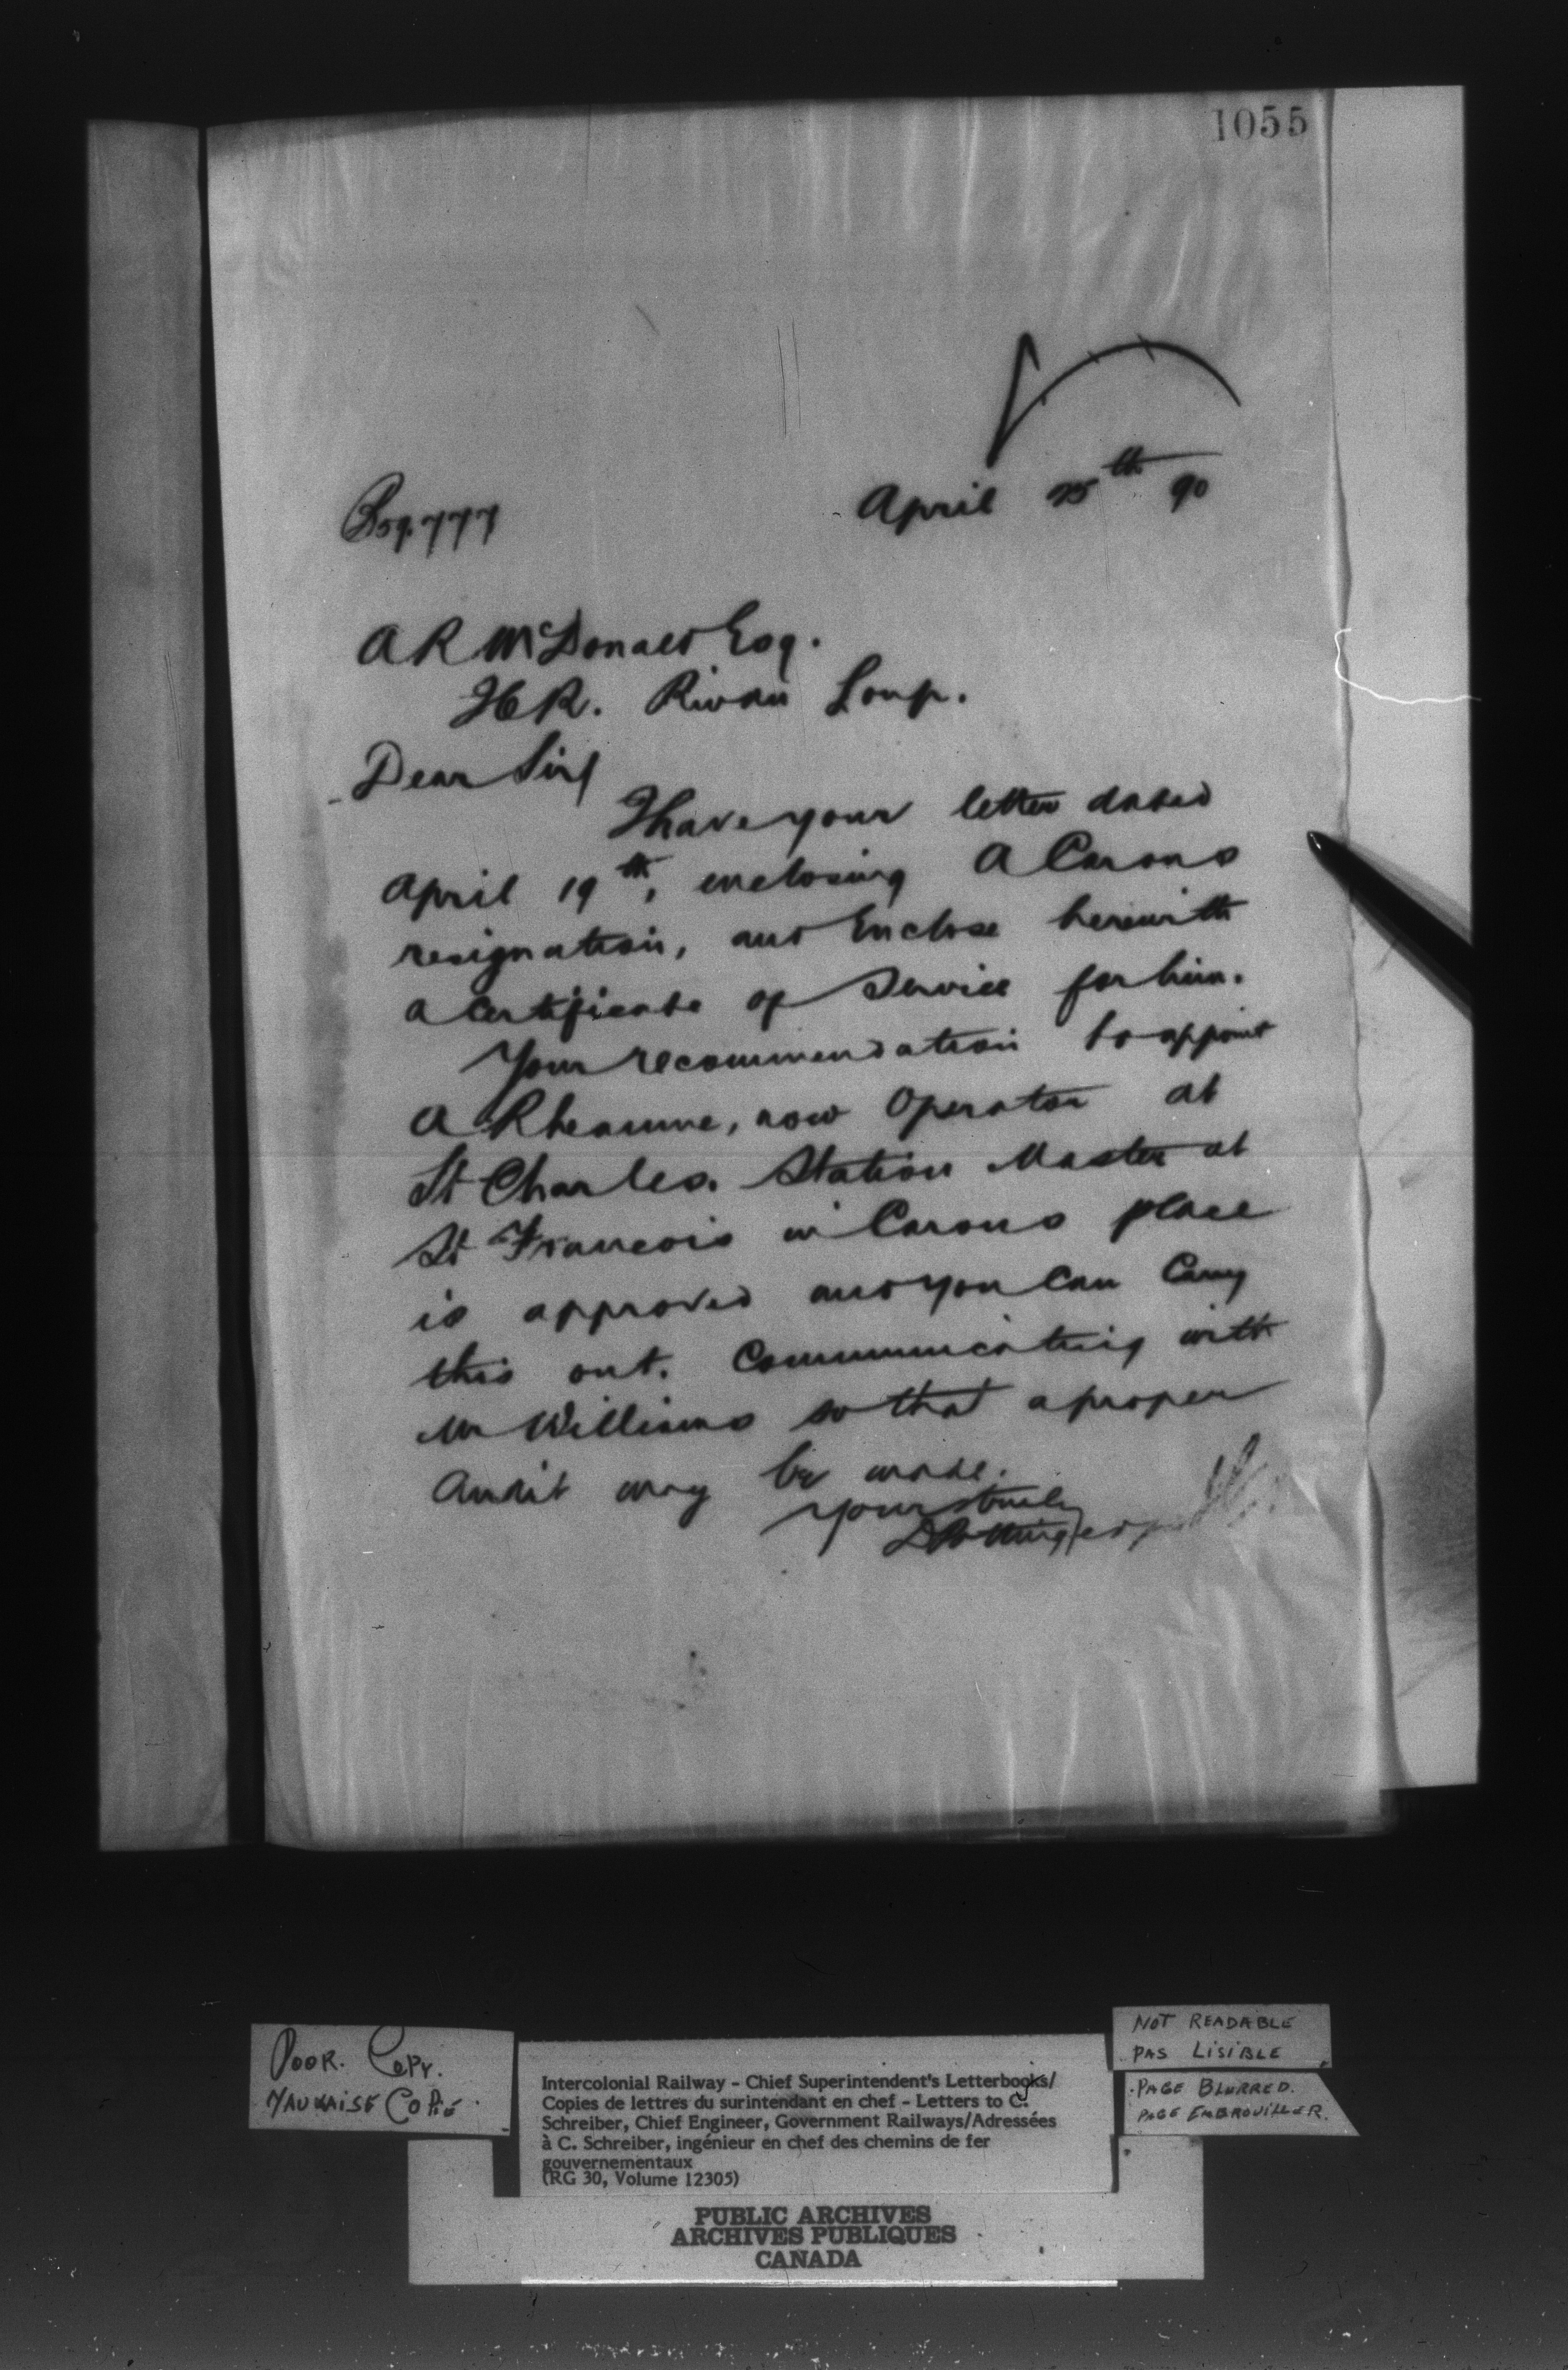 1055
April 25th 90
B59.777
A R McDonald Esq.
ICR. Riviere Loup.
Dear Sir/
I have your letter dated
April 19th, enclosing A Carons
resignation, and Enclose herewith
a Certificate of Service for him.
Your recommendation to appoint
A Rheaume, now Operator at
St Charles. Station Master at
St Francois in Carons place
is approved and you Can Carry
this out. Communicating with
Mr Williams so that a proper
audit may be made.
Yours truly
D Pottinger
POOR. COPY.
MAUVAISE COPIE.
NOT READABLE
PAS LISIBLE
PAGE BLURRED.
PAGE EMBROUILLER.
Intercolonial Railway - Chief Superintendent's Letterbooks/
Copies de lettres du surintendant en chef - Letters to C.
Schreiber, Chief Engineer, Government Railways/Adressées
à C. Schreiber, ingénieur en chef des chemins de fer
gouvernementaux
(RG 30, Volume 12305)
PUBLIC ARCHIVES
ARCHIVES PUBLIQUES
CANADA